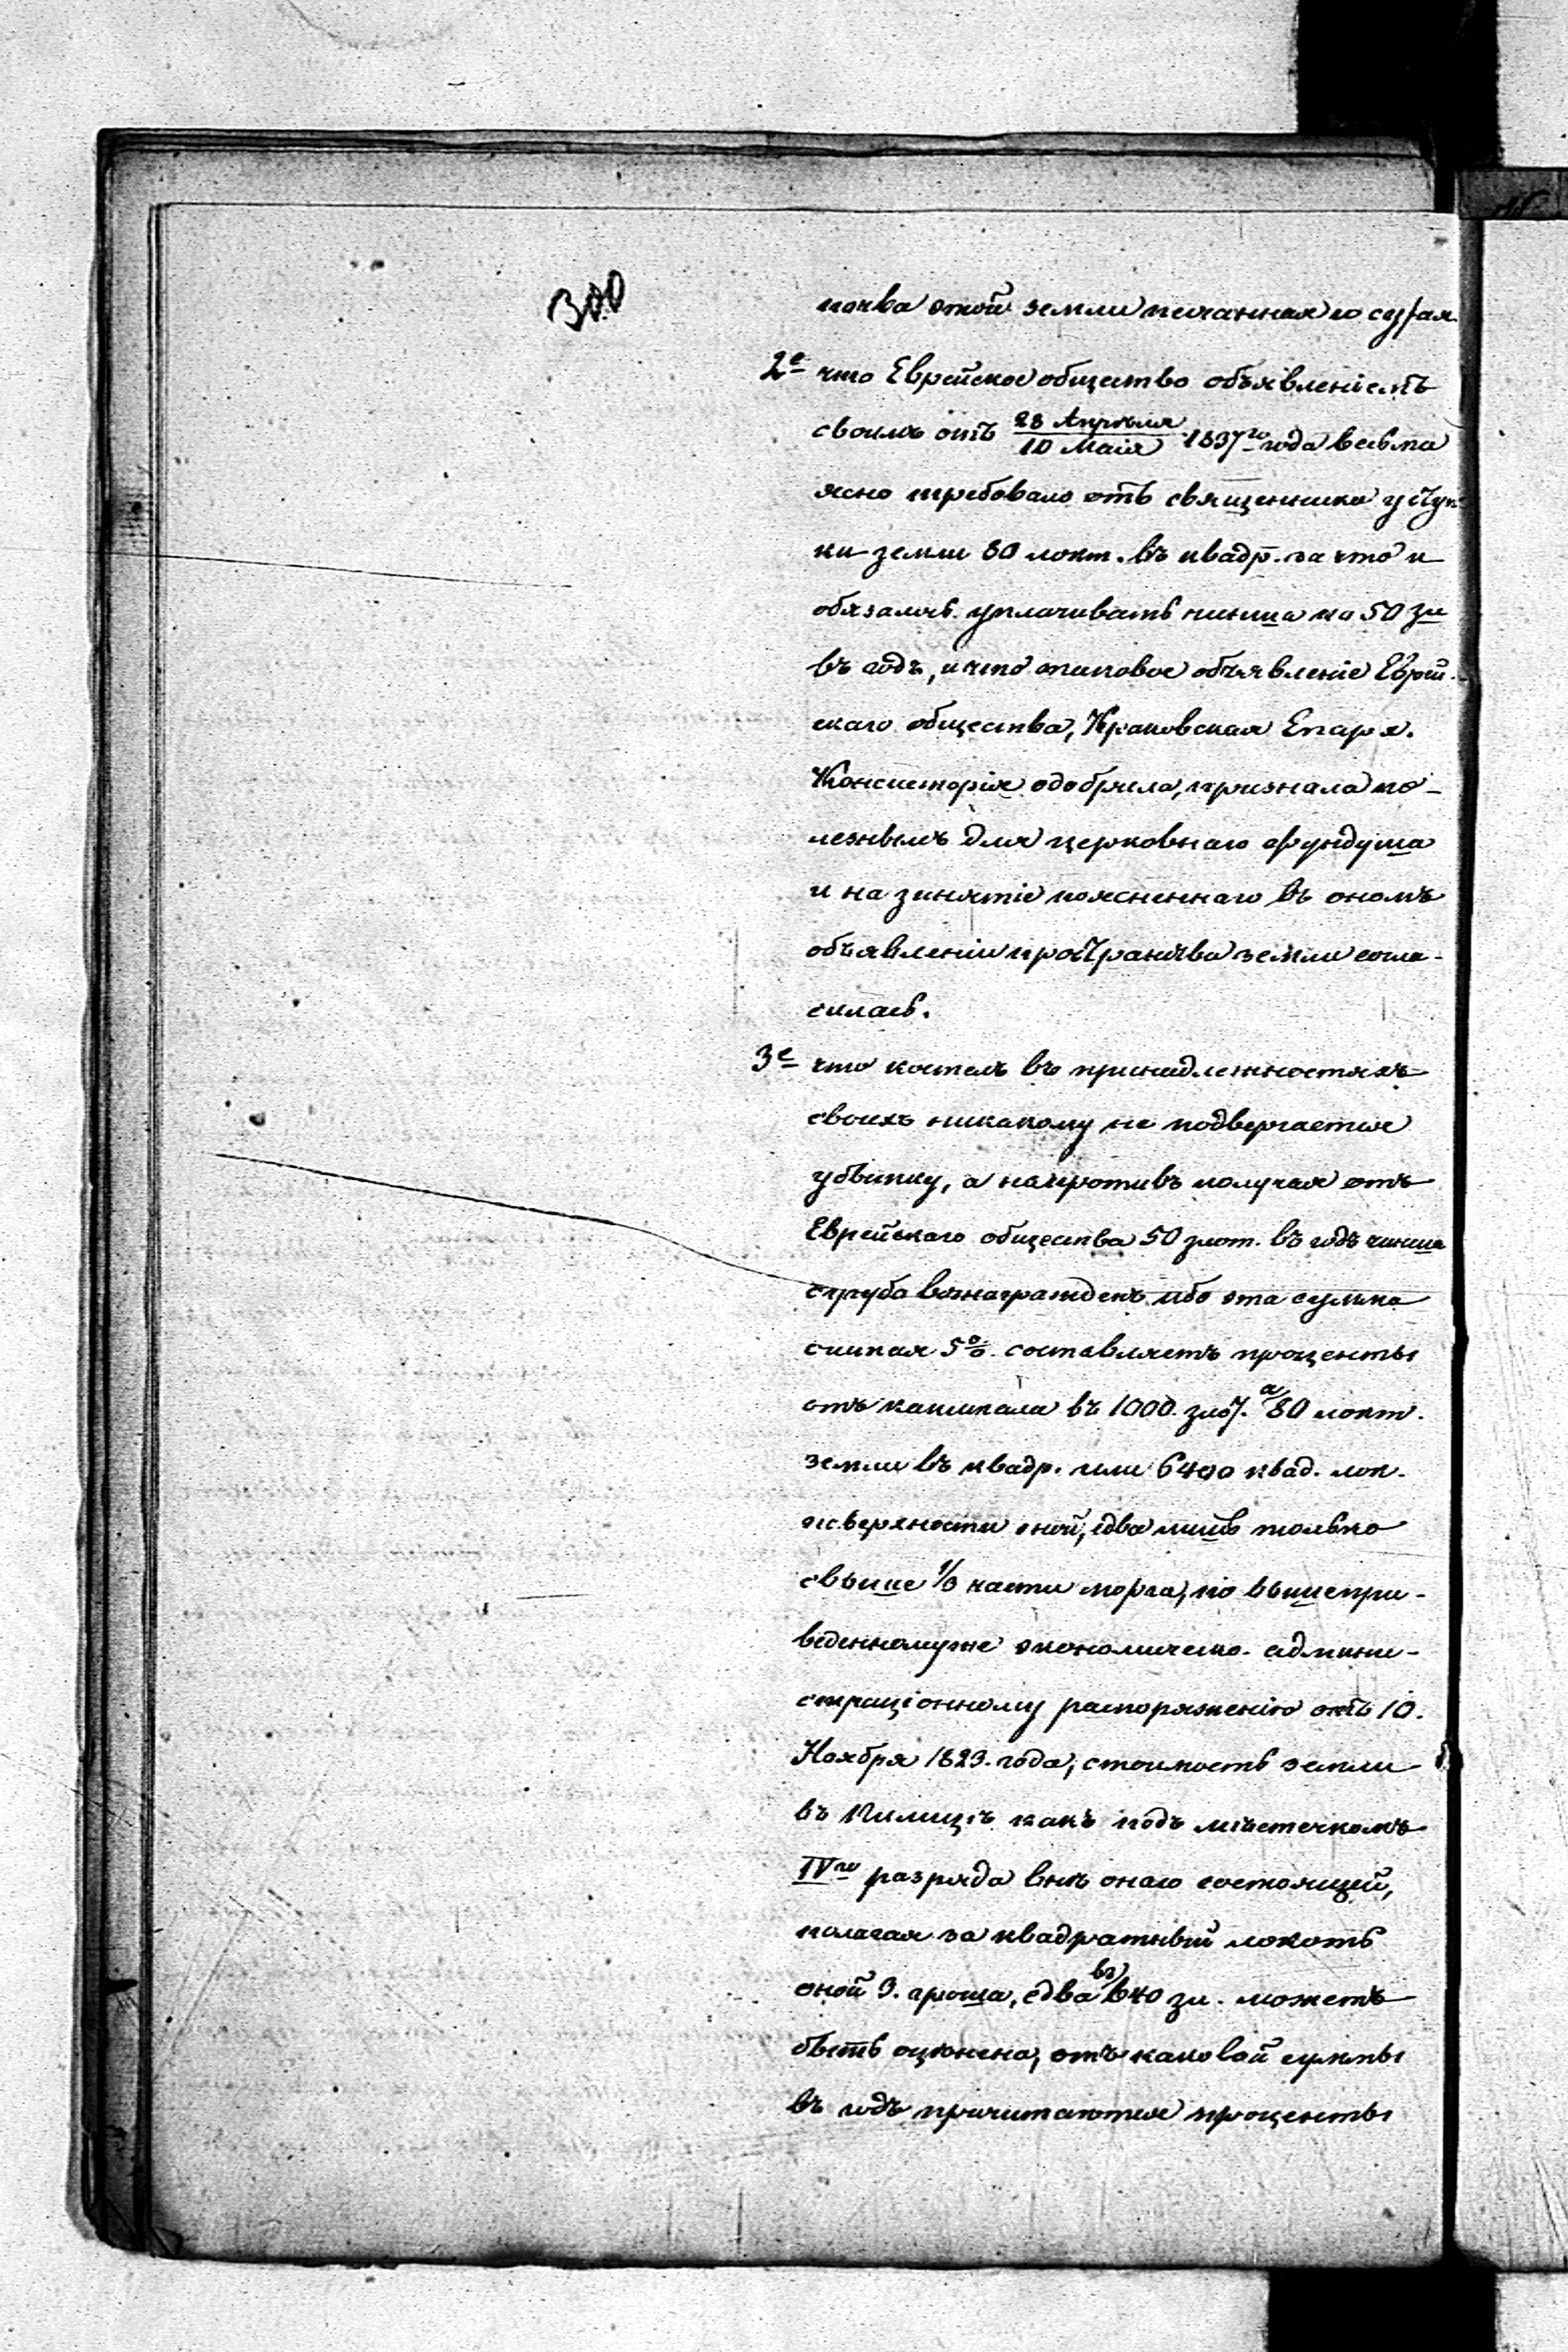 300
почва этой земли песчанная и сухая
2е что Еврейское общество объявленіемъ
своимъ отъ 28 Апрѣля / 10 Маія 1837го года весьма
ясно требовало отъ священника уступ
ки земли 80 локт. въ квадр. за что и
обязалось уплачивать чинша по 50 зл
въ годъ, и что таковое объявленіе Еврей-
скаго общества, Краковская Епарх.
Консисторія одобрила, признала по-
лезнымъ для церковнаго фундуша
и на занятіе поясненнаго въ ономъ
объявленіи пространства земли согла-
силась.
3е что костелъ въ принадлежностяхъ
своихъ никакому не подвергается
убытку, а напротивъ получая отъ
Еврейскаго общества 50 злот. въ годъ чинша
сугубо вознагражденъ ибо эта сумма
считая 5%. составляетъ проценты
отъ капитала въ 1000 злот. а 80 локт.
земли въ квадр. или 6400 квад. лок.
поверхности оной, едва лишь только
свыше 1/3 части морга, по вышепри-
веденномуже экономическо-админи-
страціонному распоряженію отъ 10.
Ноября 1823. года, стоимость земли
въ Пилицѣ какъ подъ мѣстечкомъ
IVго разряда внѣ онаго состоящей,
полагая за квадратный локоть
оной 3. гроша, едва въ 640 зл. можетъ
быть оцѣнена, отъ каковой суммы
въ годъ причитаются проценты